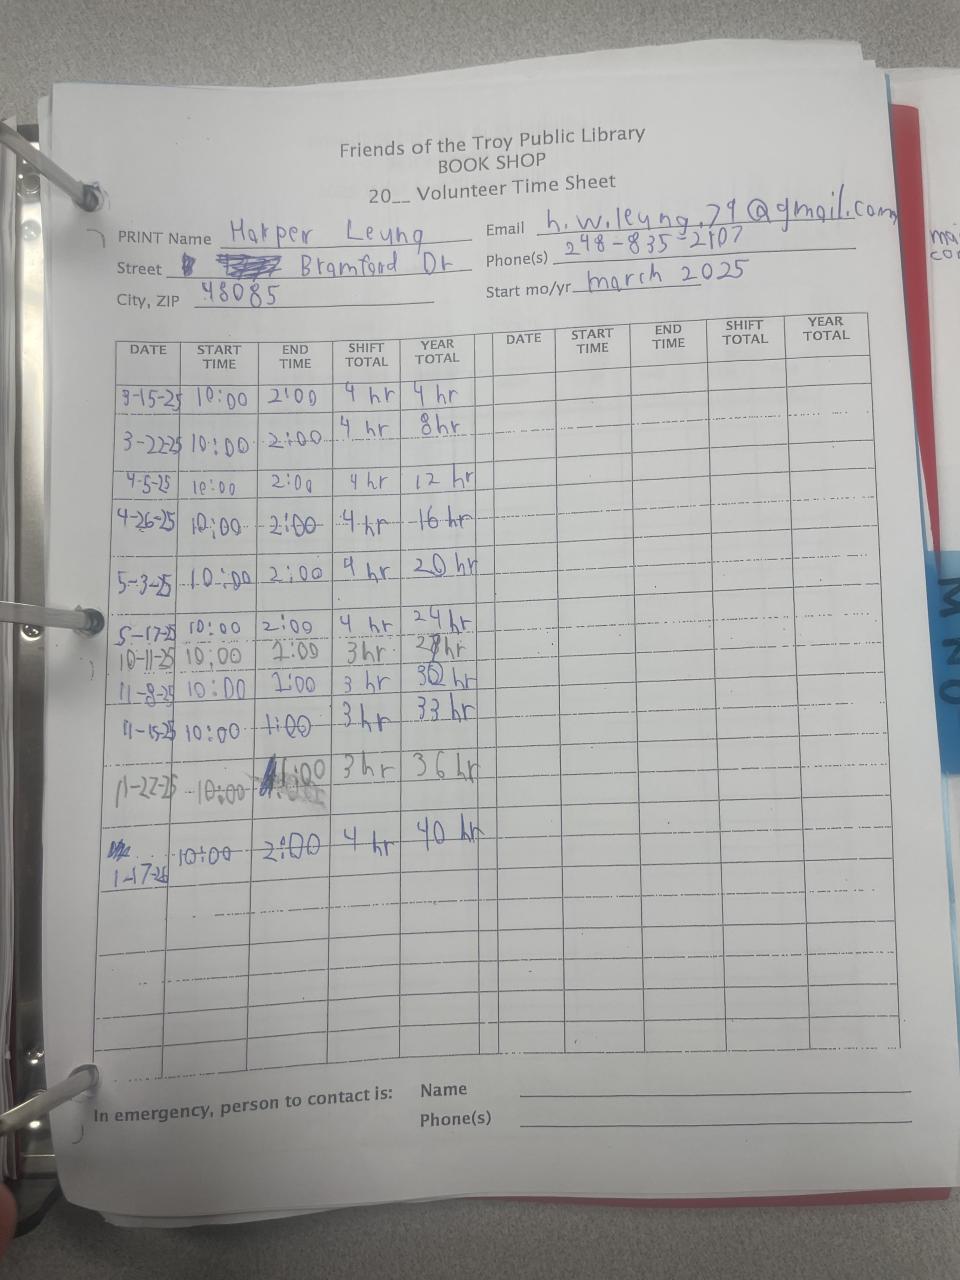 Friends of the Troy Public Library
BOOK SHOP
20__ Volunteer Time Sheet
PRINT Name Harper Leung
Email h.w.leung.79@gmail.com
Street Bramford Dr
Phone(s) 248-835-2107
City, ZIP 48085
Start mo/yr march 2025
DATE START TIME END TIME SHIFT TOTAL YEAR TOTAL DATE START TIME END TIME SHIFT TOTAL YEAR TOTAL
3-15-25 10:00 2:00 4 hr 4 hr
3-22-25 10:00 2:00 4 hr 8hr
4-5-25 10:00 2:00 4 hr 12 hr
4-26-25 10:00 2:00 4 hr 16 hr
5-3-25 10:00 2:00 4 hr 20 hr
5-17-25 10:00 2:00 4 hr 24 hr
10-11-25 10:00 1:00 3hr hr
11-8-25 10:00 1:00 3 hr 30 hr
11-15-25 10:00 1:00 3hr 33 hr
11-22-25 10:00 1:00 3hr 36 hr
1-17-26 10:00 2:00 4 hr 40 hr
In emergency, person to contact is: Name
Phone(s)
M N O